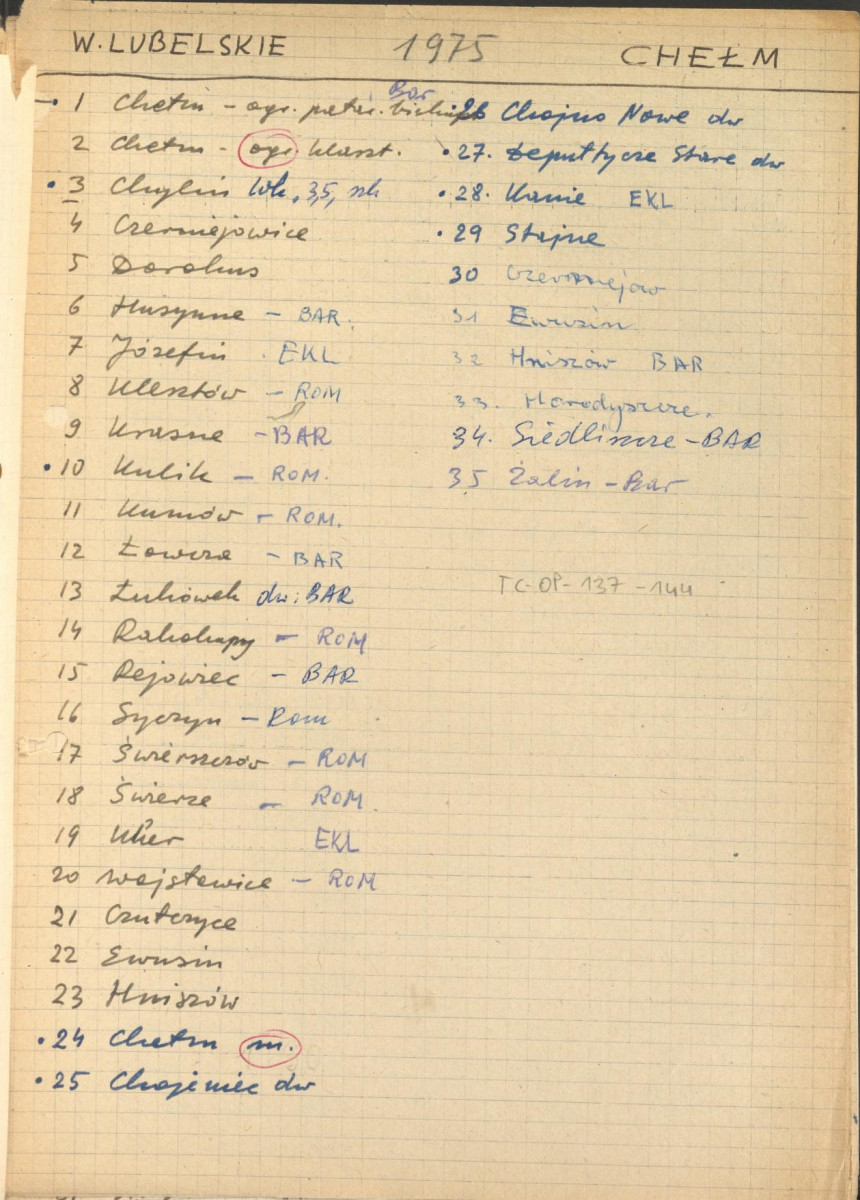 W. LUBELSKIE 1975 CHEŁM
1 Chełm - ogr. pałac. biskup. Bar
2 Chełm - ogr klaszt.
3 Chylin Wk, 35, szk
4 Czerniejowice
5 Dorohus
6 Husynne - BAR.
7 Józefin . EKL
8 Klesztów - ROM
9 Krasne - BAR
10 Kulik - ROM.
11 Kumów - ROM.
12 Łowcza - BAR
13 Łukówek dw: BAR
14 Rakołupy - ROM
15 Rejowiec - BAR
16 Syczyn - Rom
17 Świerszczów - ROM
18 Świerże - ROM.
19 Uher EKL
20 Wojsławice - ROM
21 Czułczyce
22 Ewusin
23 Hniszów
24 Chełm m.
25 Chojeniec dw
26 Chojno Nowe dw
27. Depułtycze Stare dw
28. Kanie EKL
29 Stajne
30 Czerniejów
31 Ewusin
32 Hniszów BAR
33. Horodyszcze.
34. Siedliszcze - BAR
35 Żalin - Bar
TC-OP-137-144